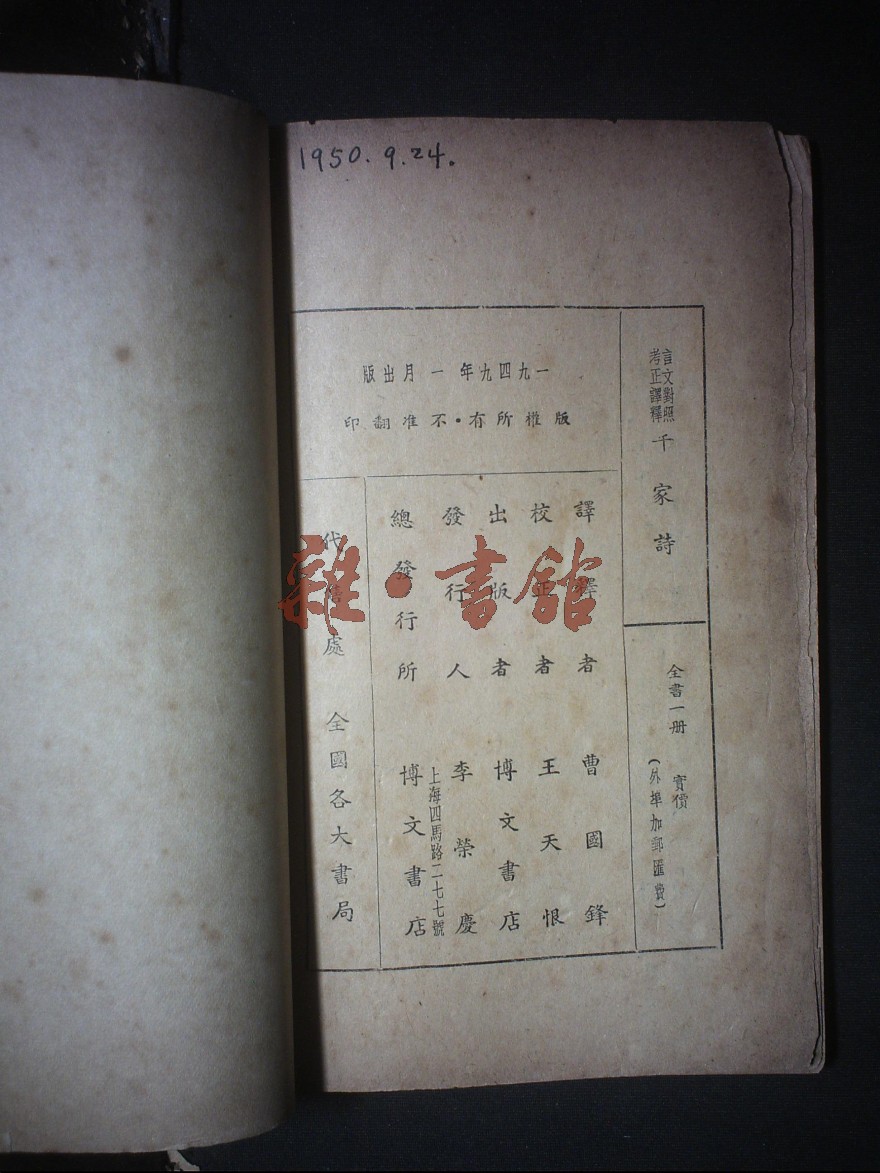 1950.9.24.
言文對照
考正譯釋
千家詩
全書一册 實價
(外埠加郵匯費)
一九四九年一月出版
版權所有·不准翻印
譯釋者 曹國鋒
校正者 王天恨
出版者 博文書店
發行人 李榮慶
上海四馬路二七七號
總發行所 博文書店
代售處 全國各大書局
雜·書館